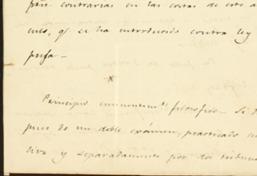 para contrarias en las costas de este a
uno, q.e se ha introducido contra ley
Principio eminentem.te filosofico. Si d
pues de un doble exámen, practicado
y separadamente por dos tribuna